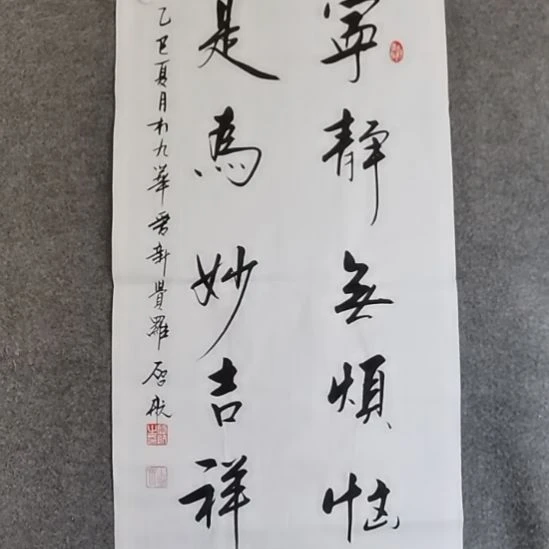 寧靜無煩惱
是為妙吉祥
乙巳夏月於九華晋新貴羅啟航